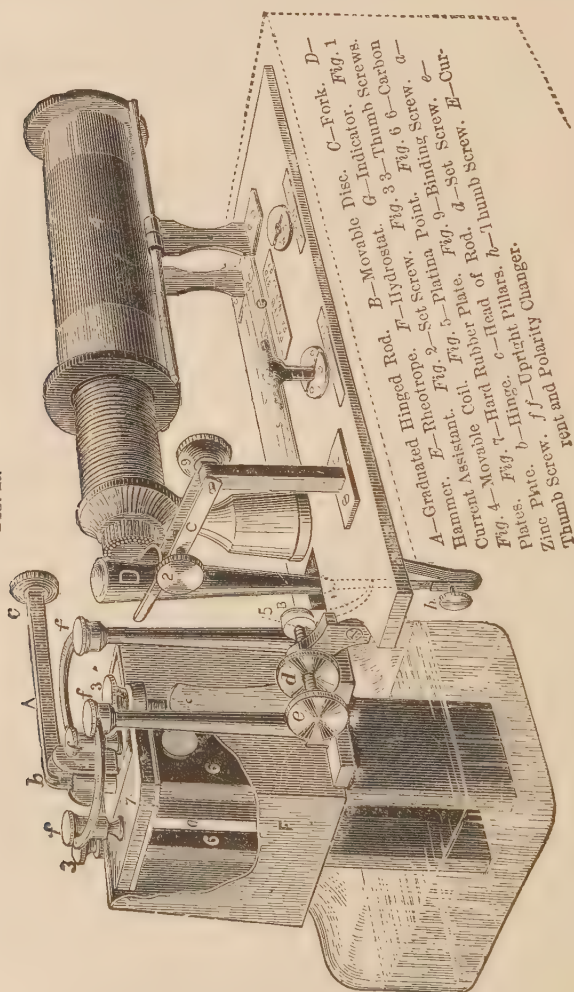 C
A
b
f
f
f
3
3
7
6
6
F
D
2
C
9
5
B
d
e
4
G
h
A—Graduated Hinged Rod. B—Movable Disc. C—Fork. D—
Hammer. E—Rheotrope. F—Hydrostat. G—Indicator. Fig. 1
Current Assistant. Fig. 2—Set Screw. Fig. 3 3—Thumb Screws.
Fig. 4—Movable Coil. Fig. 5—Platina Point. Fig. 6 6—Carbon
Plates. Fig. 7—Hard Rubber Plate. Fig. 9—Binding Screw. a—
Zinc Plate. b—Hinge. c—Head of Rod. d—Set Screw. e—
Thumb Screw. f f—Upright Pillars. h—Thumb Screw. E—Cur-
rent and Polarity Changer.